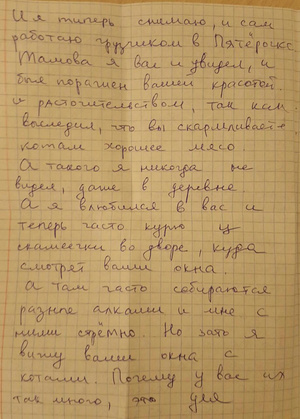 И я типерь снимаю, и сам
работаю грузчиком в Пятёрочке
Тамова я вас и увидел, и
был поражен вашей красотой
и расточительством, так как
выследил, что вы скармливаете
котам хорошее мясо.
А такого я никогда не
видел, даже в деревне
А я влюбился в вас и
теперь часто курю
скамеечки во дворе, куда
смотрят ваши окна.
А там часто собираются
разные алкаши и мне с
ними стрёмно. Но зато я
вижу ваши окна с
котами. Почему у вас их
так много, это для